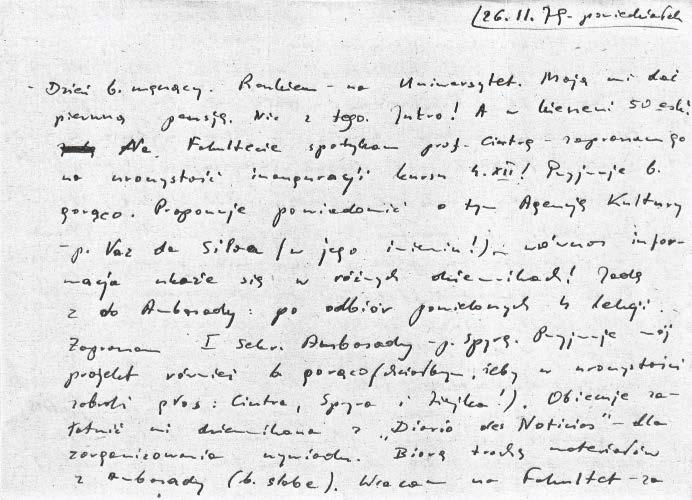 26.11.79 - poniedziałek
- Dzień b. męczący. Rankiem - na Uniwersytet. Mają mi dać
pierwszą pensję. Nic z tego. Jutro! A w kieszeni 50 esk.
Na Fakultecie spotykam prof. Cintrę - zapraszam go
na uroczystość inauguracji kursu 4.XII! Przyjmuje b.
gorąco. Proponuje powiadomić o tym Agencję Kultury
- p. Vaz da Silva (w jego imieniu!) - wówczas infor-
macja ukaże się w różnych dziennikach! Jadę
z do Ambasady: po odbiór powielonych 4 lekcji.
Zapraszam I Sekr. Ambasady - p. Spyrę. Przyjmuje mój
projekt również b. gorąco (chciałbym, żeby w uroczystości
zabrali głos: Cintra, Spyra i Ziejka!). Obiecuje za-
łatwić mi dziennikarza z "Diario des Noticias" - dla
zorganizowania wywiadu. Biorę trochę materiałów
z Ambasady (b. słabe). Wracam na Fakultet - za